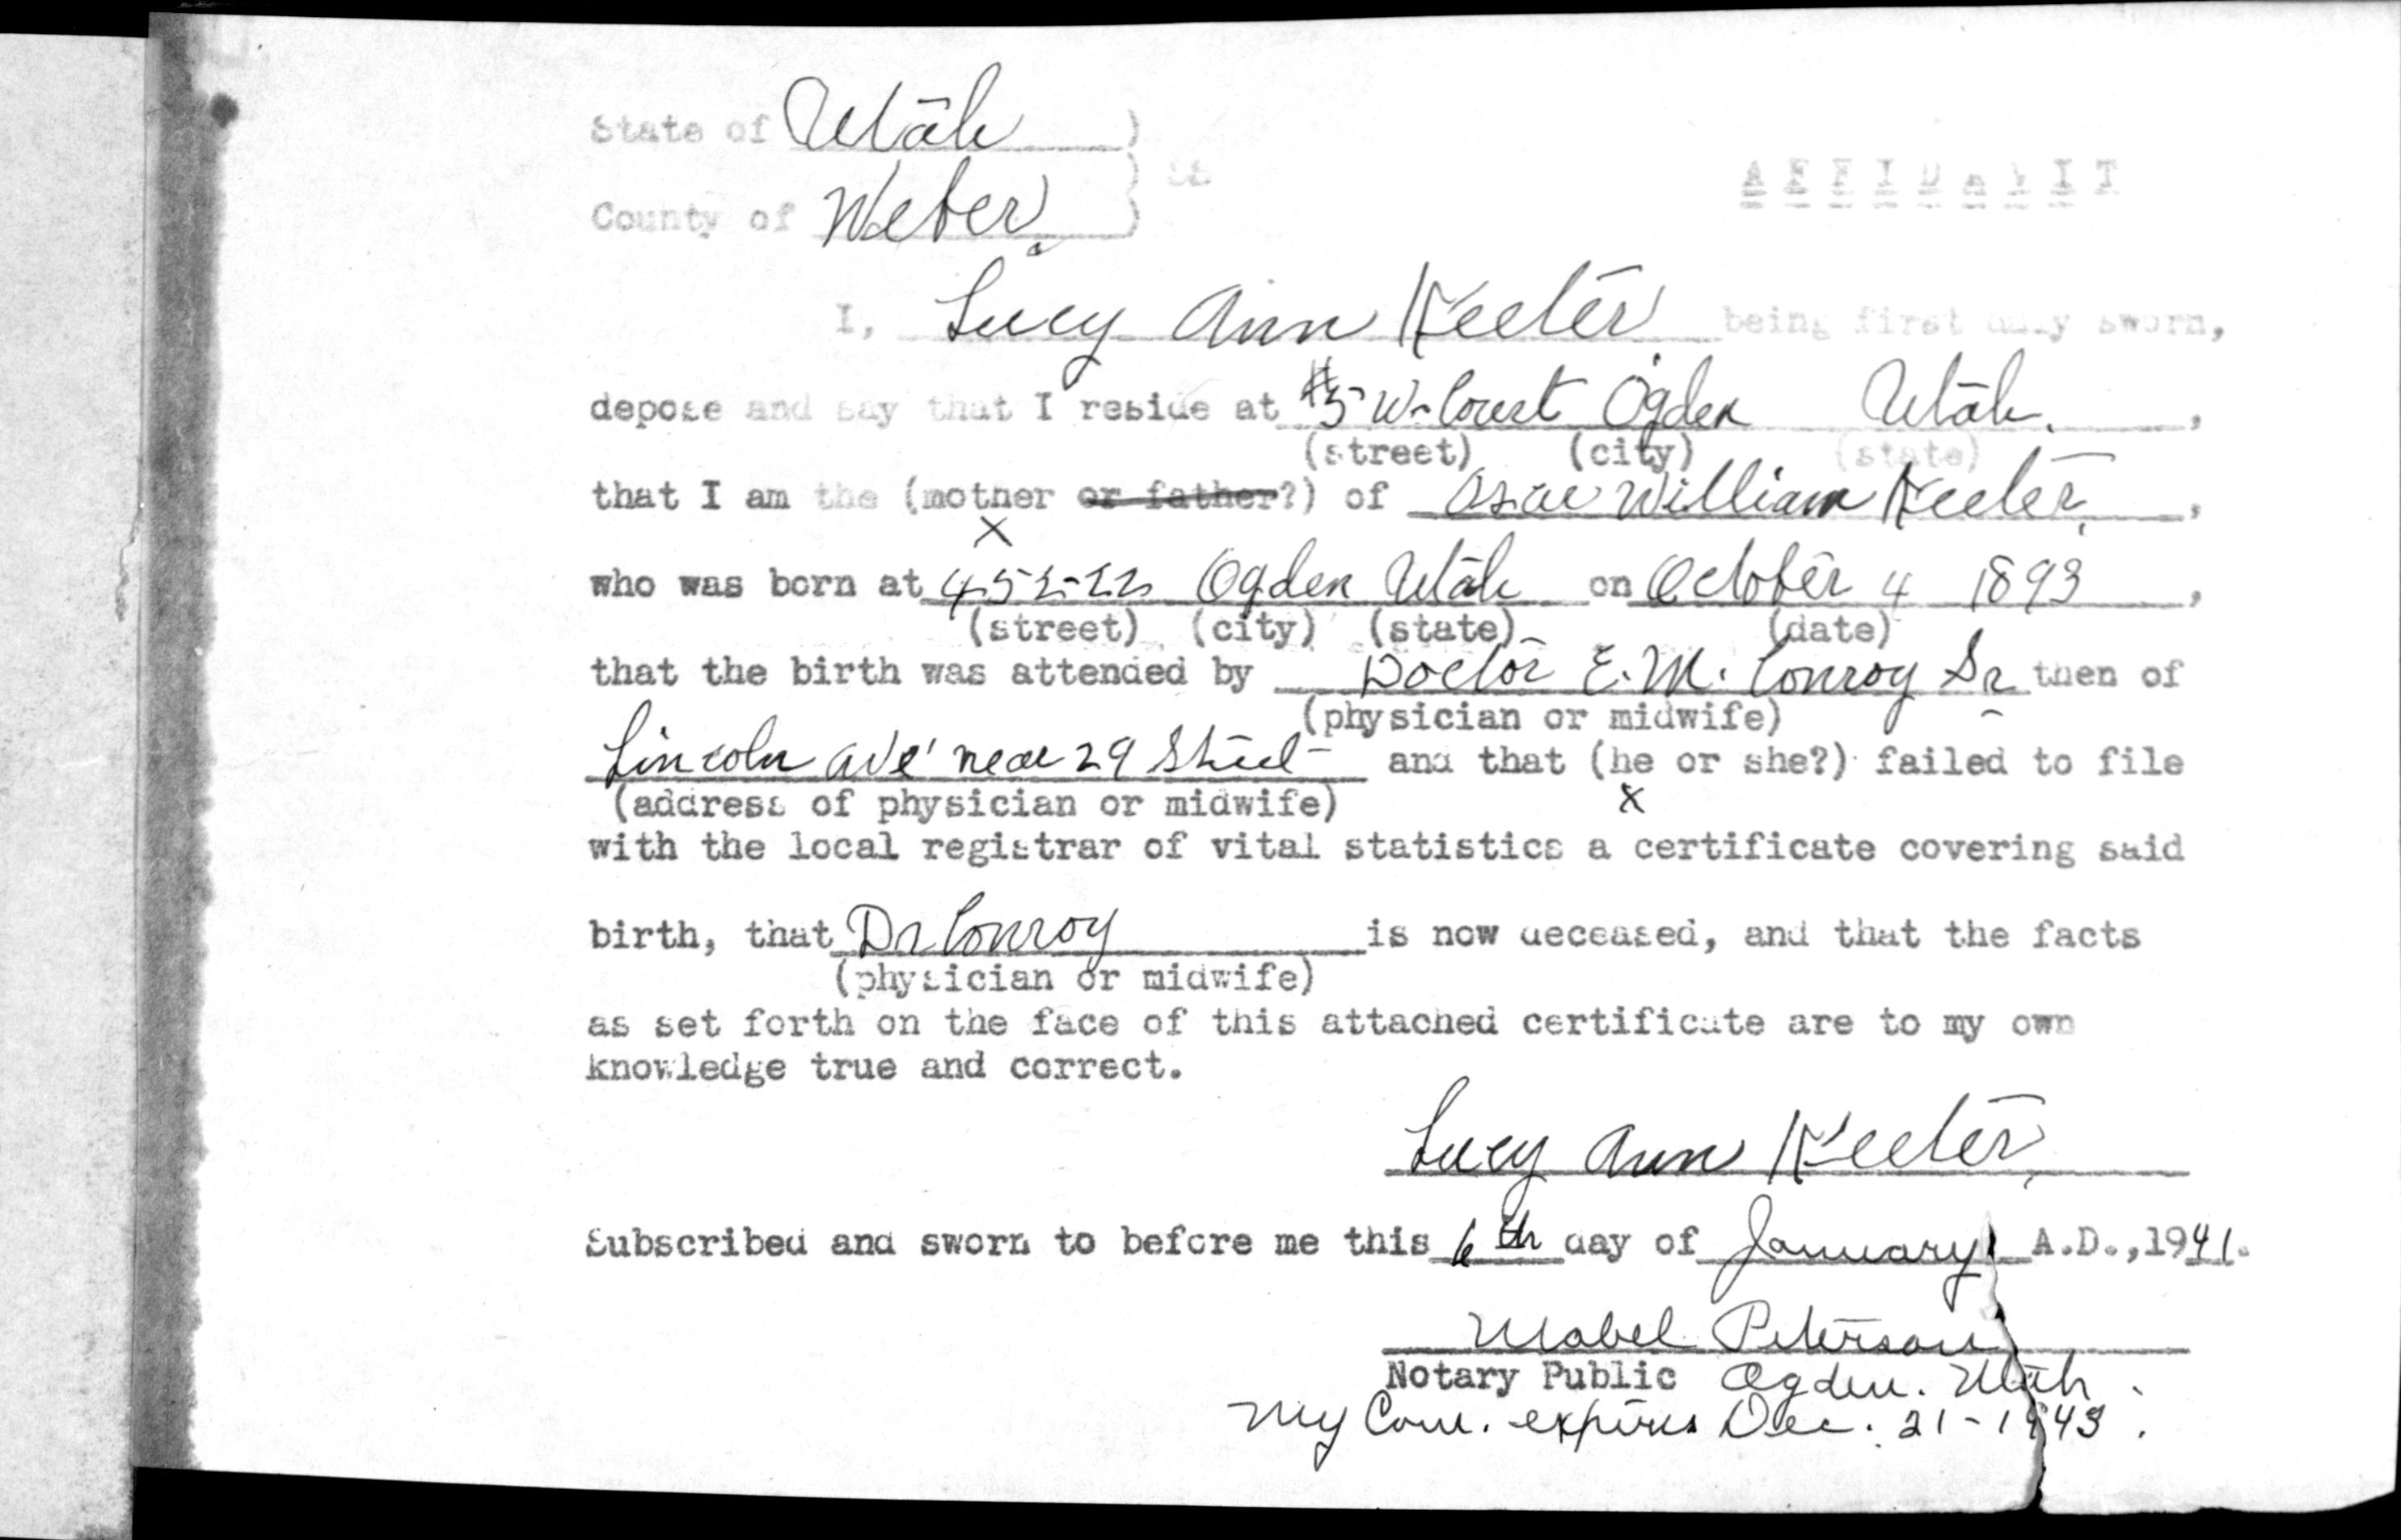 State of Utah )
) SS
County of Weber. )
AFFIDAVIT
I, Lucy Ann Keeter being first duly sworn,
depose and say that I reside at #5 W. Court Ogden Utah.,
(street) (city) (state)
that I am the (mother or father?) of William Keeter,
X
who was born at 452-22 Ogden Utah on October 4 1893,
(street) (city) (state) (date)
that the birth was attended by Doctor E. M. Conroy Sr then of
(physician or midwife)
Lincoln ave' near 29 Street and that (he or she?) failed to file
(address of physician or midwife) X
with the local registrar of vital statistics a certificate covering said
birth, that Dr Conroy is now deceased, and that the facts
(physician or midwife)
as set forth on the face of this attached certificate are to my own
knowledge true and correct.
Lucy Ann Keeter
Subscribed and sworn to before me this 6th day of January A.D., 1941.
Mabel Peterson
Notary Public Ogden. Utah.
My Com. expires Dec. 21-1943.